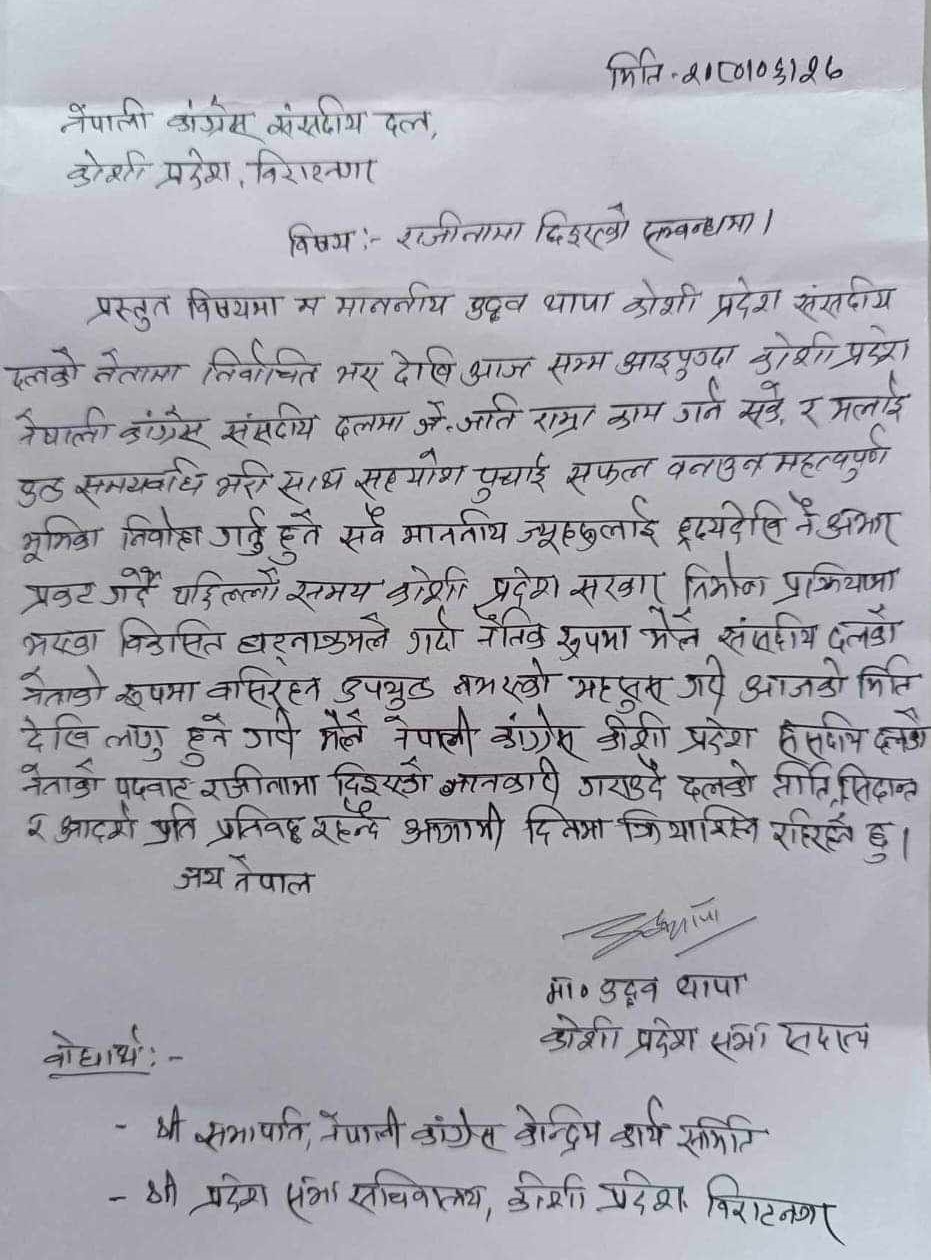 मिति - २०८०।०६।२७
नेपाली कांग्रेस संसदीय दल,
कोशी प्रदेश, विराटनगर
विषय :- राजीनामा दिइएको सम्बन्धमा।
प्रस्तुत विषयमा म माननीय उद्धव थापा कोशी प्रदेश संसदीय
दलको नेतामा निर्वाचित भए देखि आज सम्म आइपुग्दा कोशी प्रदेश
नेपाली कांग्रेस संसदीय दलमा जे-जति राम्रा काम गर्न सकें, र मलाई
उक्त समयावधि भरी साथ सहयोग पुर्‍याई सफल बनाउन महत्वपुर्ण
भूमिका निर्वाह गर्नु हुने सबै माननीय ज्यूहरुलाई हृदयदेखि नै आभार
प्रकट गर्दै पछिल्लो समय कोशी प्रदेश सरकार निर्माण प्रक्रियामा
भएका विकसित घटनाक्रमले गर्दा नैतिक रुपमा मैले संसदीय दलको
नेताको रूपमा बसिरहन उपयुक्त नभएको महसुस गरी आजको मिति
देखि लागु हुने गरी मैले नेपाली कांग्रेस कोशी प्रदेश संसदीय दलको
नेताको पदबाट राजीनामा दिइएको जानकारी गराउदै दलको नीति, सिदान्त
र आदर्श प्रति प्रतिबद्ध रहन्दै आगामी दिनमा क्रियाशिल रहिरहने छु।
जय नेपाल
मा० उद्धव थापा
कोशी प्रदेश सभा सदस्य
बोधार्थ :-
- श्री सभापति, नेपाली कांग्रेस केन्द्रिय कार्य समिति
- श्री प्रदेश सभा सचिवालय, कोशी प्रदेश विराटनगर